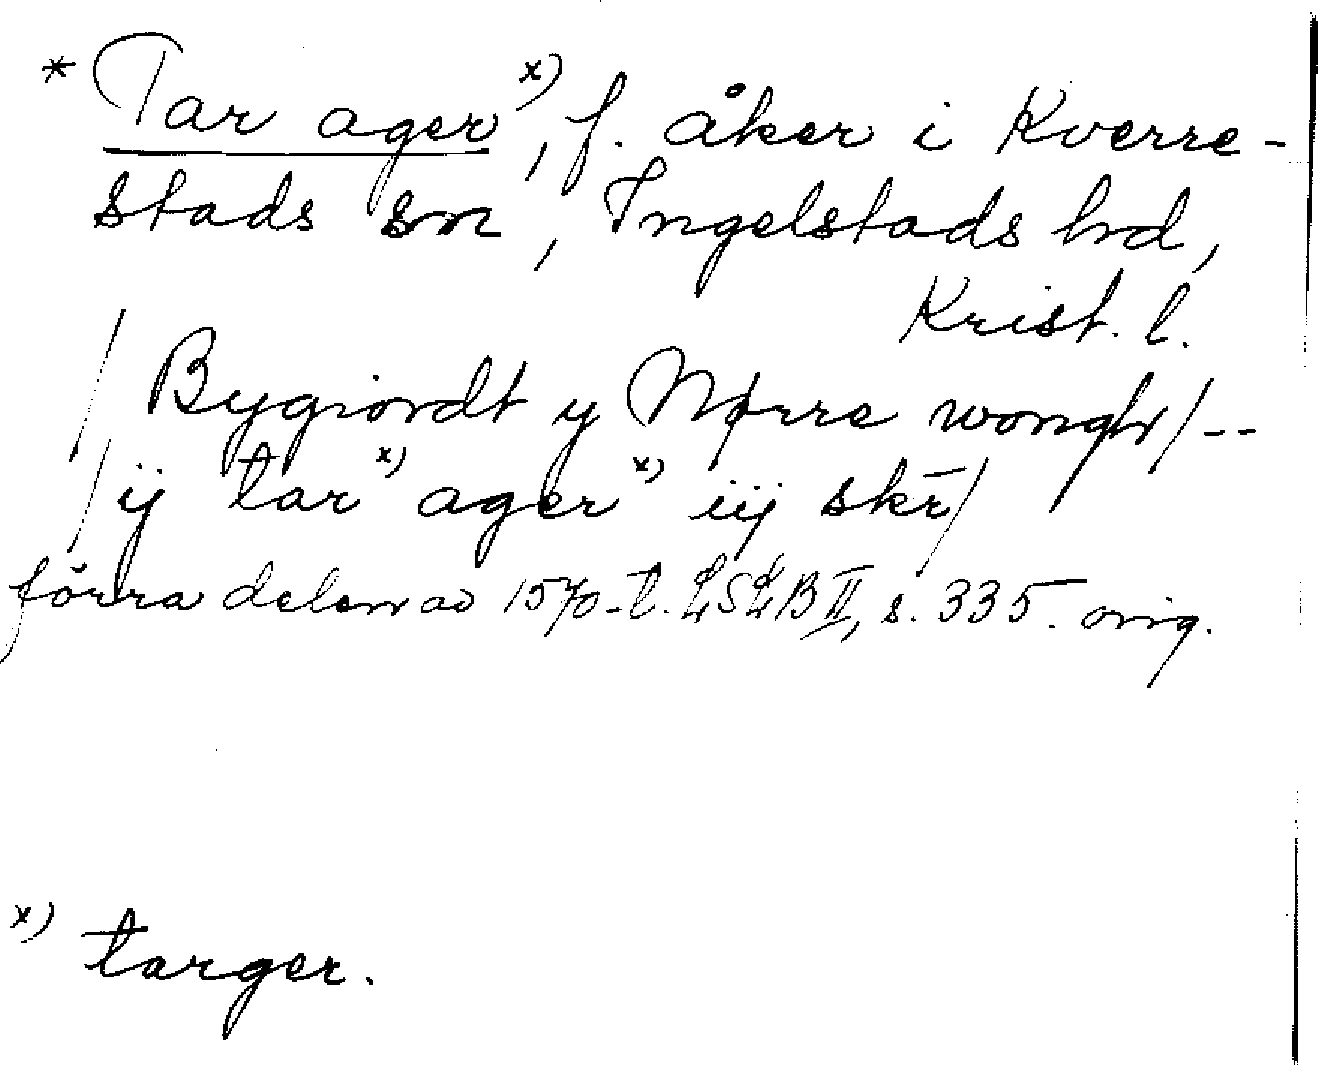 * Tar ager x), f. åker i Kverre-
stads sn, Ingelstads hd,
Krist. l.
/ Bygiordt y Nørre wongh / --
/ ij tar x) ager x) iij skr̄ /
förra delen av 1570-t. LSLB II, s. 335. orig.
x) targer.